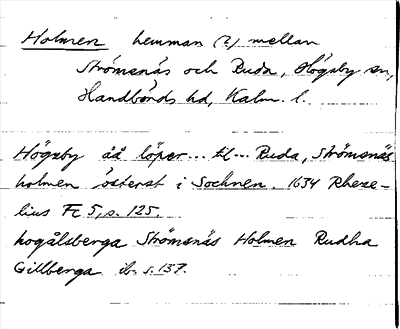 Holmen hemman (?) mellan
Strömsnäs och Ruda, Högsby sn,
Handbörds hd, Kalm. l.
Högsby åå löper... til... Ruda, Strömsnäs
holmen österst i Sochnen. 1634 Rheze-
lius Fc 5, s. 125.
hogålsberga Strömsnäs Holmen Rudha
Gillberga ib. s. 137.